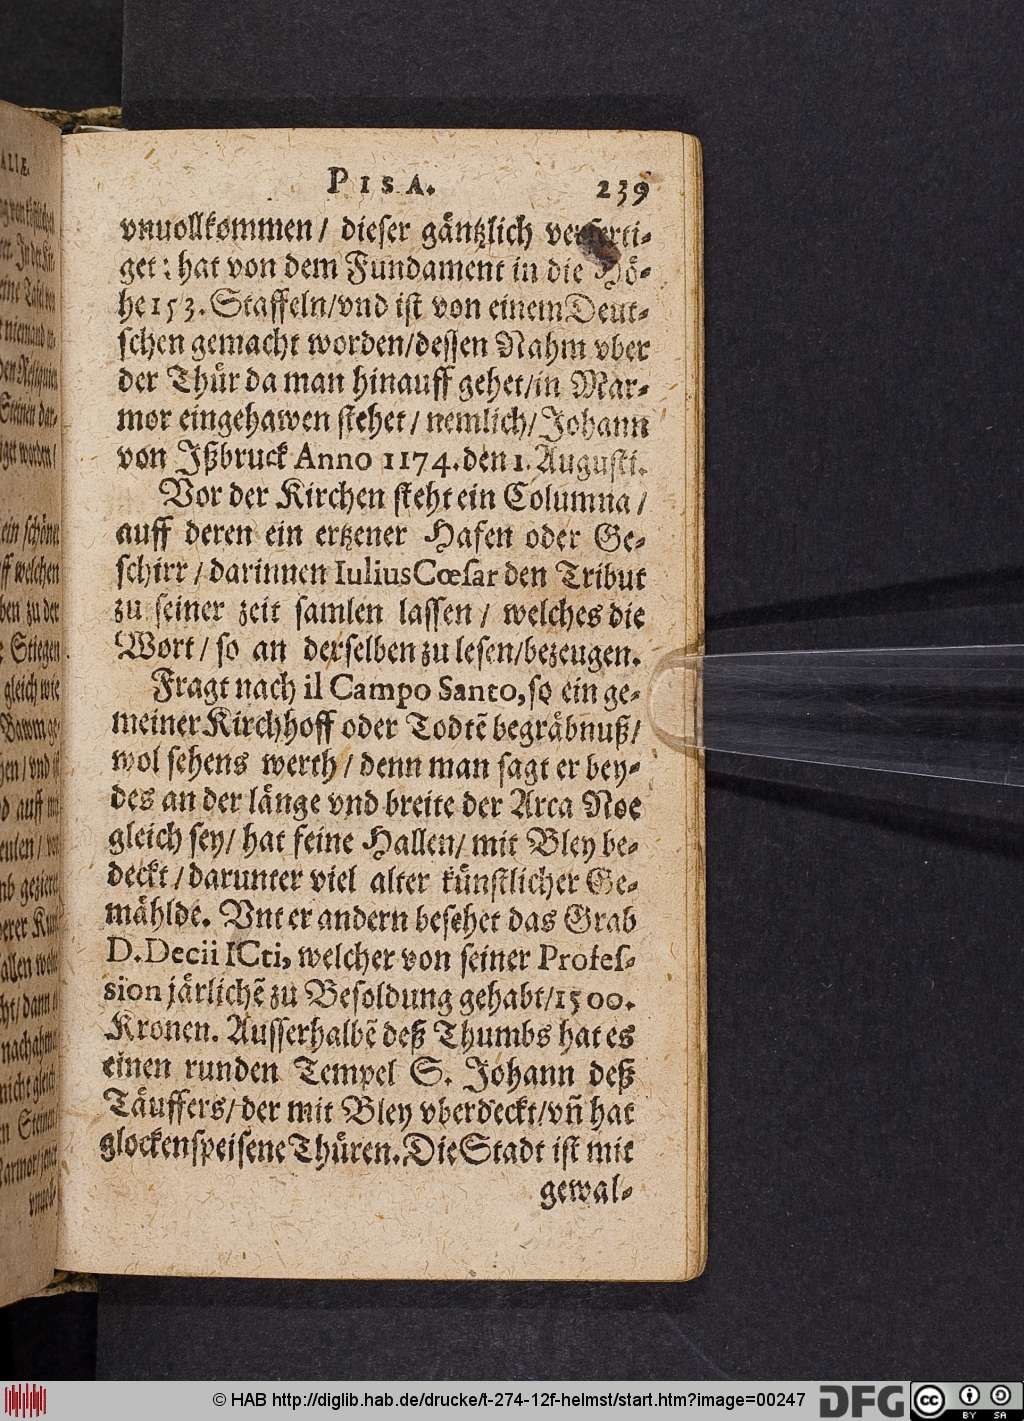 PISA. 239
vnuollkommen / dieser gäntzlich verferti-
get : hat von dem Fundament in die Hö-
he 153. Staffeln/vnd ist von einem Deut-
schen gemacht worden/dessen Nahm vber
der Thür da man hinauff gehet/in Mar-
mor eingehawen stehet / nemlich/ Johann
von Jßbruck Anno 1174. den 1. Augusti.
Vor der Kirchen steht ein Columna /
auff deren ein ertzener Hafen oder Ge-
schirr / darinnen Iulius Cœsar den Tribut
zu seiner zeit samlen lassen / welches die
Wort / so an derselben zu lesen/bezeugen.
Fragt nach il Campo Santo, so ein ge-
meiner Kirchhoff oder Todtẽ begräbnuß/
wol sehens werth / denn man sagt er bey-
des an der länge vnd breite der Arca Noe
gleich sey/ hat feine Hallen/ mit Bley be-
deckt / darunter viel alter künstlicher Ge-
mählde. Vnter andern besehet das Grab
D. Decii ICti, welcher von seiner Profes-
sion järlichẽ zu Besoldung gehabt/1500.
Kronen. Ausserhalbẽ deß Thumbs hat es
einen runden Tempel S. Johann deß
Täuffers/ der mit Bley vberdeckt/vñ hat
glockenspeisene Thüren. Die Stadt ist mit
gewal-
ALIÆ.
ein schöner
ff welchen
ben zu der
Stiegen
gleich wie
© HAB http://diglib.hab.de/drucke/t-274-12f-helmst/start.htm?image=00247
DFG
cc BY SA